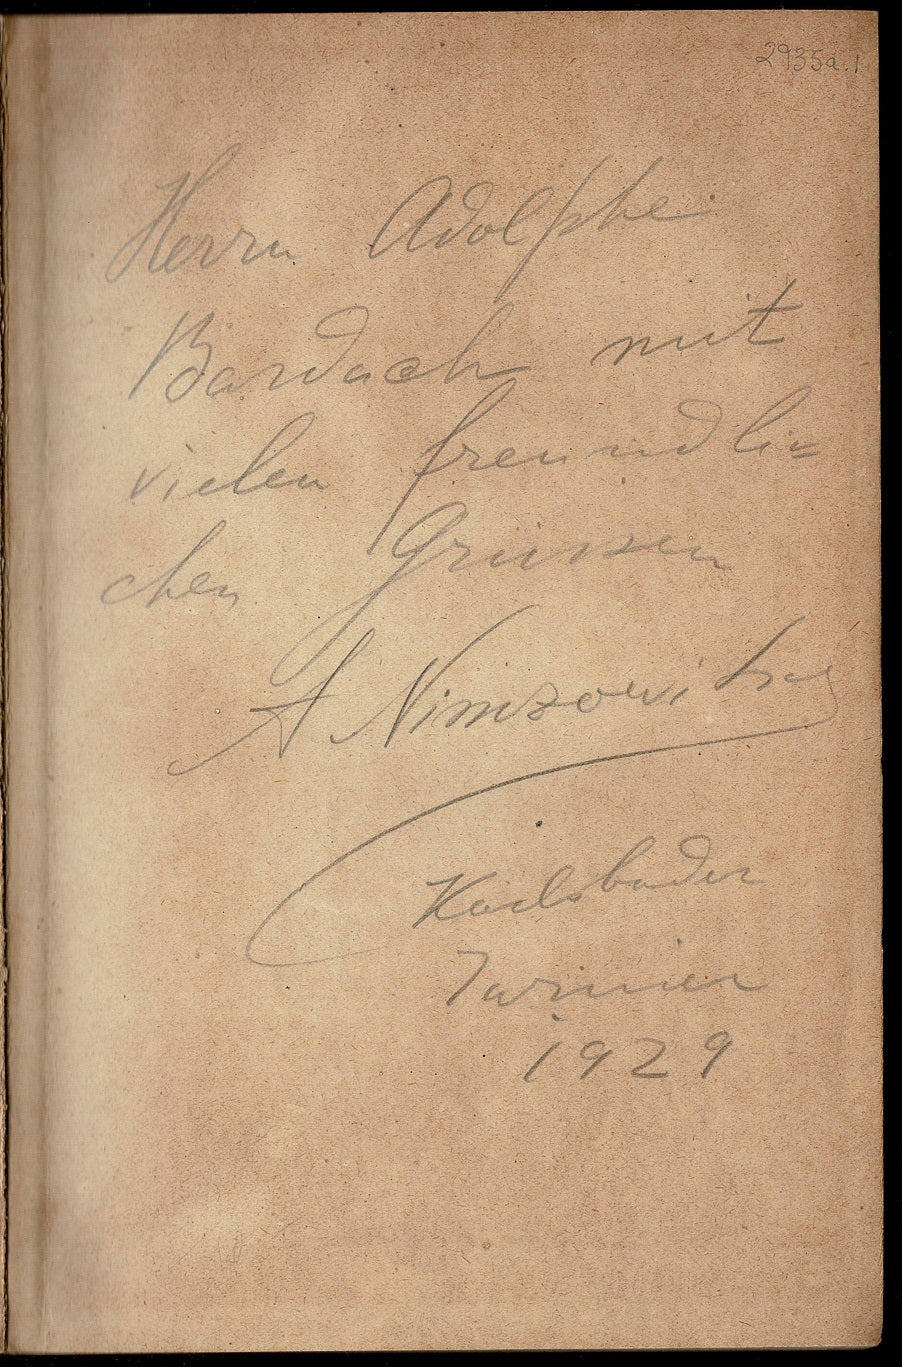 2935a.1
Herrn Adolphe
Bardach mit
vielen freundli=
chen Grüssen
A Nimzowitsch
Karlsbader
Turnier
1929